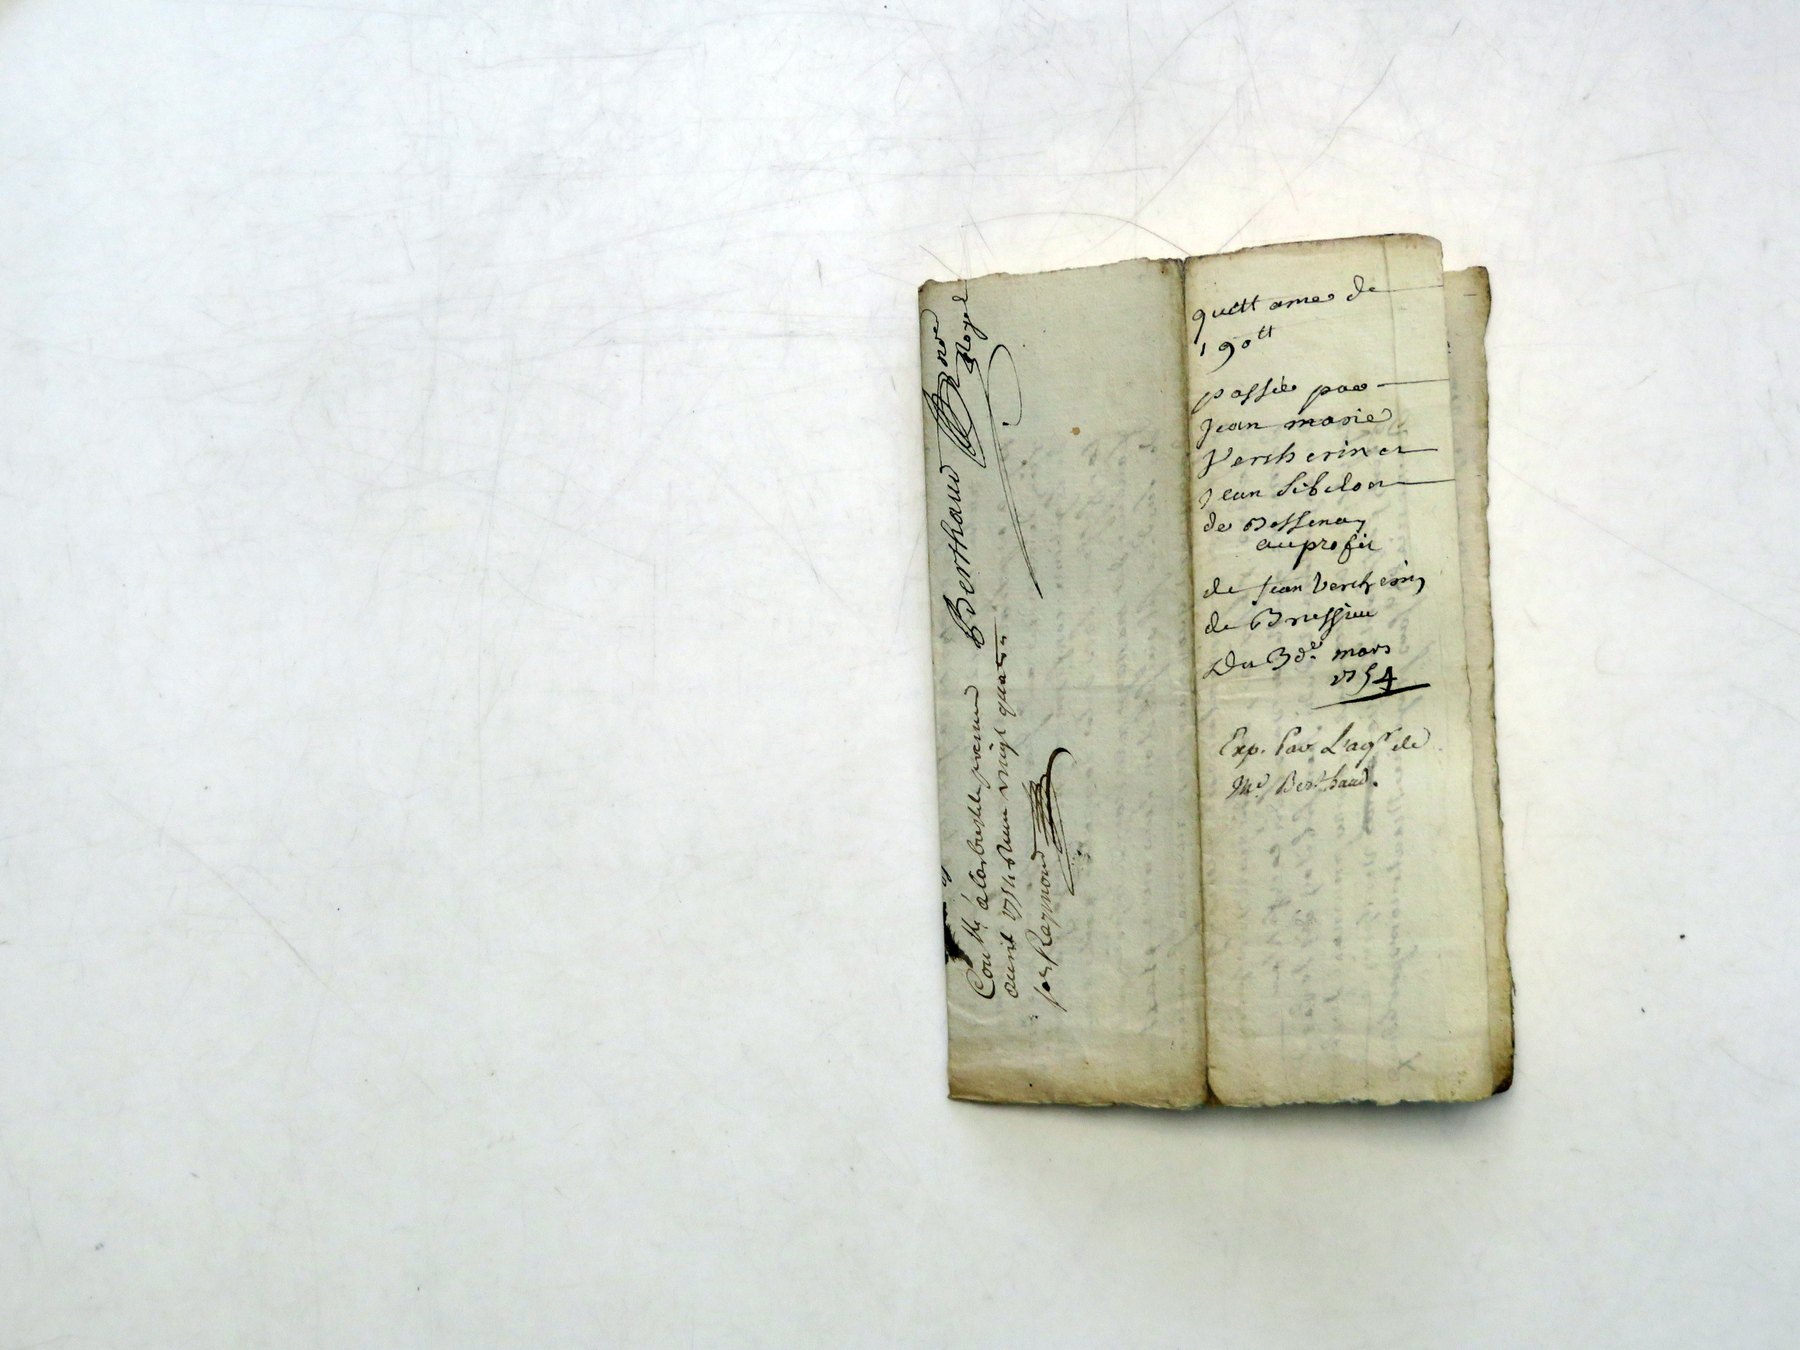 quitt ance de
190tt
passée par
Jean marie
Vercherin et
Jean Sibilon
de Bessenay
au profit
de Jean Vercherin
de Brussieu
Du 3d.e mars
1754
Exp. Par L'aq.r de
Me Berthaud.
Berthaud
nore Royal
Con lle à larbresle premier
avril 1754 Reçu vingt quatre
Raymond